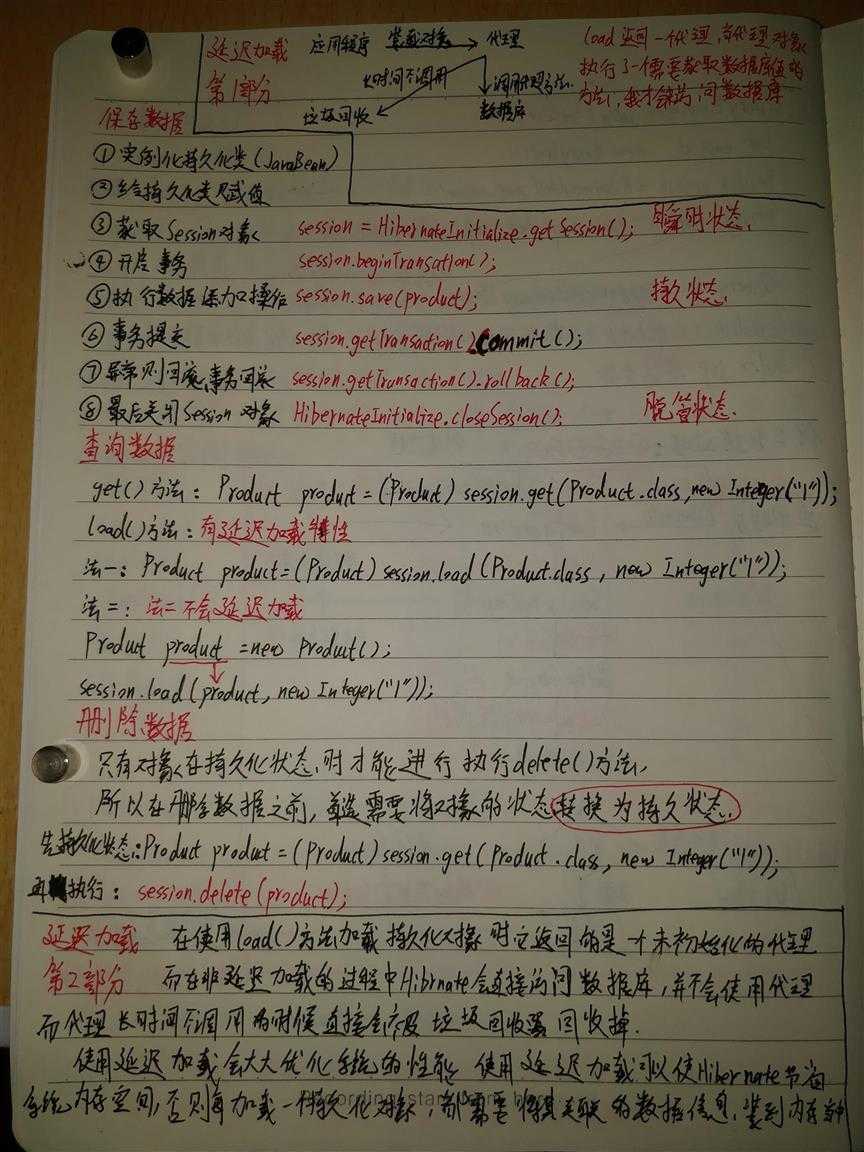 延迟加载
第1部分
应用程序 装载对象 代理
长时间不调用 调用代理方法
垃圾回收 数据库
load返回一代理,当代理对象
执行了一個需要获取数据库值的
方法,我才会访问数据库
保存数据
①实例化持久化类(JavaBean)
②给持久化类赋值
③获取Session对象 session = HibernateInitialize.getSession(); 瞬时状态.
④开启事务 session.beginTransation();
⑤执行数据添加操作 session.save(product); 持久状态.
⑥事务提交 session.getTransaction().commit();
⑦异常则回滚,事务回滚 session.getTransaction().rollback();
⑧最后关闭Session对象 HibernateInitialize.closeSession(); 脱管状态.
查询数据
get()方法: Product product = (Product) session.get(Product.class,new Integer("1"));
load()方法:有延迟加载特性
法一: Product product=(Product) session.load(Product.class, new Integer("1"));
法二: 法二不会延迟加载
Product product =new Product();
session.load(product, new Integer("1"));
删除数据
只有对象在持久化状态时才能进行执行delete()方法,
所以在删除数据之前,首先需要将对象的状态转换为持久状态.
先持久化状态: Product product = (Product)session.get(Product.class, new Integer("1"));
再执行: session.delete(product);
延迟加载 在使用load()方法加载持久化对象时它返回的是一个未初始化的代理
第2部分 而在非延迟加载的过程中Hibrnate会直接访问数据库,并不会使用代理
而代理长时间不调用的时候直接会被垃圾回收器回收掉.
使用延迟加载会大大优化系统的性能 使用延迟加载可以使Hibernate节省
系统内存空间,否则每加载一个持久化对象,都需要将其关联的数据信息,装到内存当中